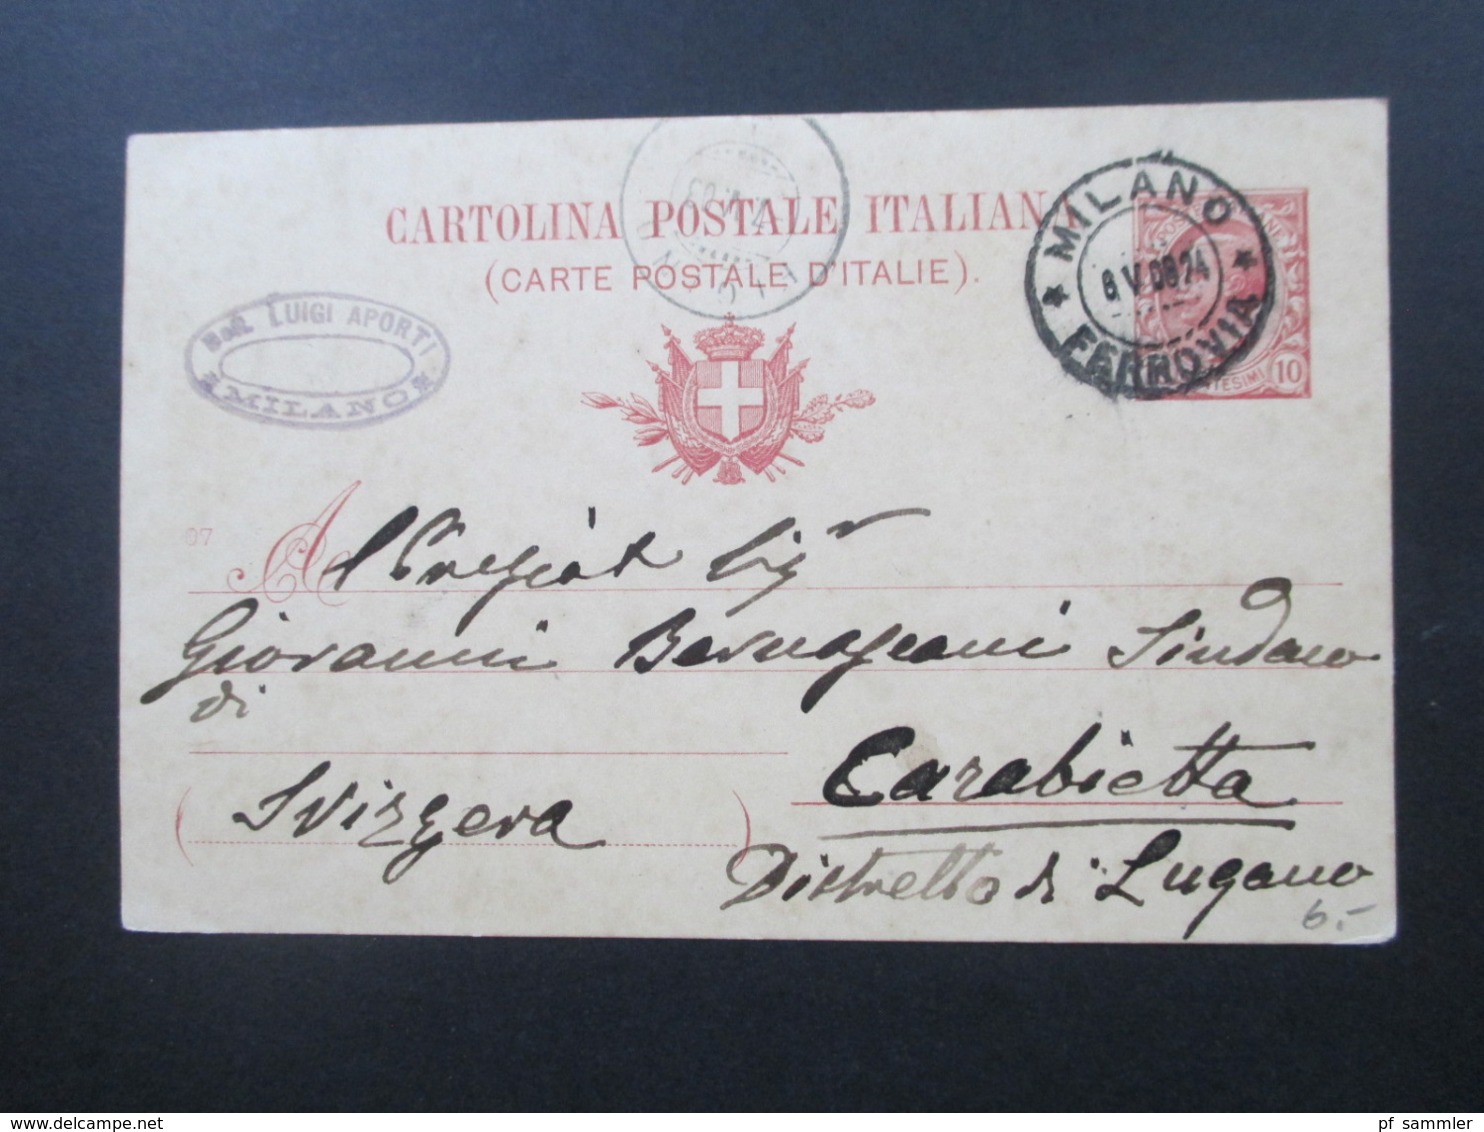 CARTOLINA POSTALE ITALIANA
(CARTE POSTALE D'ITALIE).
MILANO
8 V 08 24
FERROVIA
10
LUIGI APORTI
MILANO
07
Al Pregiat Sigr
Giovanni Bernasconi Sindaco
di
Carabietta
(Svizzera)
Distretto di Lugano
6.-
pf_sammler